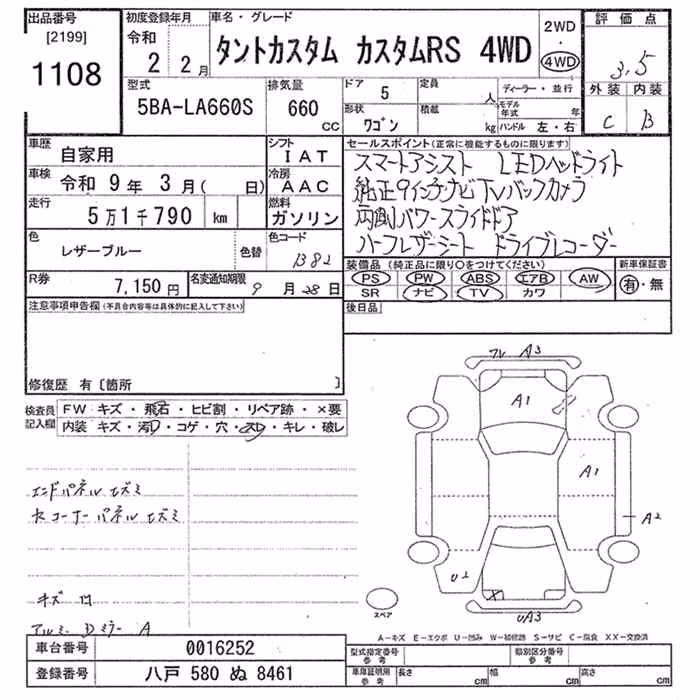 出品番号 [2199] 1108
初度登録年月 令和 2 2月
車名・グレード タントカスタム カスタムRS 4WD
2WD 4WD
評価点 3.5
外装 内装
C B
型式 5BA-LA660S
排気量 660 CC
ドア 5 定員 人
形状 ワゴン 積載 kg
ディーラー・並行
モデル年式 年
ハンドル 左・右
車歴 自家用
シフト IAT
車検 令和 9年 3月( 日)
冷房 AAC
走行 5万1千790 km
燃料 ガソリン
色 レザーブルー 色替
色コード B82
R券 7,150円
名変通知期限 9月28日
セールスポイント(正常に機能するものに限ります)
スマートアシスト LEDヘッドライト
純正9インチナビTVバックカメラ
両側パワースライドドア
ハーフレザーシート ドライブレコーダー
装備品(純正品に限り○をつけてください)
PS PW ABS エアB AW
SR ナビ TV カワ
新車保証書 有・無
後日品
注意事項申告欄(不具合内容等は具体的に記入して下さい)
修復歴 有〔箇所 〕
検査員記入欄
FW キズ・飛石・ヒビ割・リペア跡・×要
内装 キズ・汚レ・コゲ・穴・スレ・キレ・破レ
エンドパネル エズミ
コーナーパネル エズミ
キズ 凹
アルミ Dミラー A
フレ A3
A1
A1
A2
U2
X
UA3
スペア
A-キズ E-エクボ U-凹み W-補修跡 S-サビ C-腐食 XX-交換済
車台番号 0016252
登録番号 八戸 580 ぬ 8461
型式指定番号 参考
類別区分番号 参考
車庫証明用 参考 長さ cm 幅 cm 高さ cm